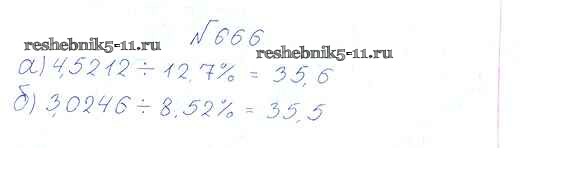 №666
reshebnik5-11.ru
reshebnik5-11.ru
а) 4,5212 ÷ 12,7% = 35,6
б) 3,0246 ÷ 8,52% = 35,5